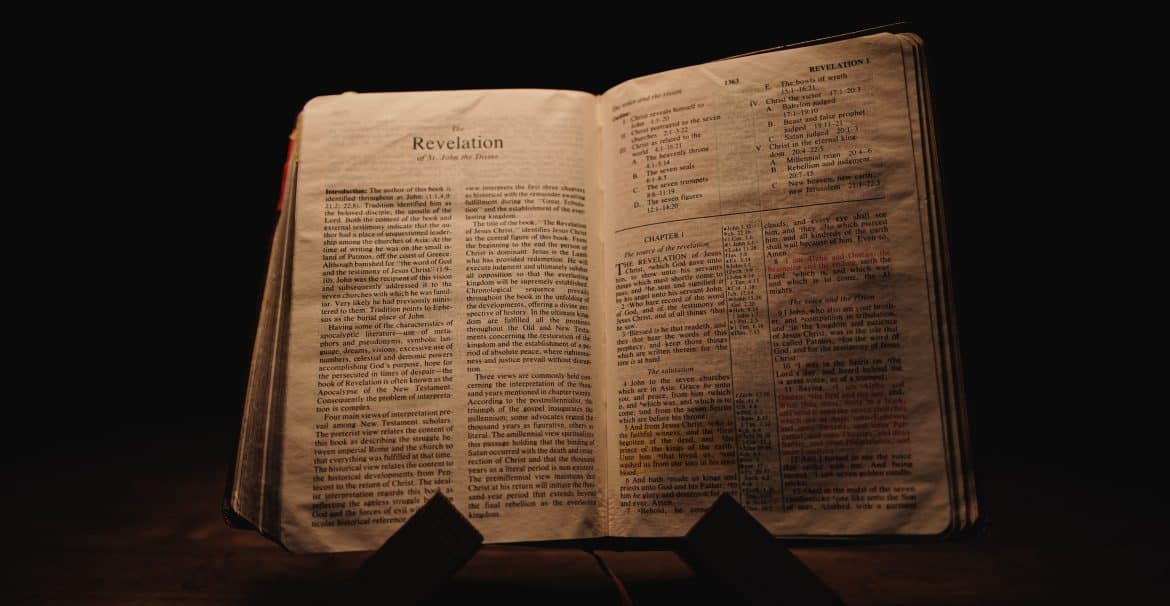 The
Revelation
of St. John the Divine
Introduction: The author of this book is
identified throughout as John; (1:1,4,9;
21:2; 22:8). Tradition identified him as
the beloved disciple, the apostle of the
Lord. Both the content of the book and
external testimony indicate that the au-
thor had a place of unquestioned leader-
ship among the churches of Asia. At the
time of writing he was on the small is-
land of Patmos, off the coast of Greece.
Although banished for "the word of God
and the testimony of Jesus Christ" (1:9-
10), John was the recipient of this vision
and subsequently addressed it to the
seven churches with which he was famil-
iar. Very likely he had previously minis-
tered to them. Tradition points to Ephe-
sus as the burial place of John.
Having some of the characteristics of
apocalyptic literature—use of meta-
phors and pseudonyms, symbolic lan-
guage, dreams, visions, excessive use of
numbers, celestial and demonic powers
accomplishing God's purpose, hope for
the persecuted in times of despair—the
book of Revelation is often known as the
Apocalypse of the New Testament.
Consequently the problem of interpreta-
tion is complex.
Four main views of interpretation pre-
vail among New Testament scholars.
The preterist view relates the content of
this book as describing the struggle be-
tween imperial Rome and the church so
that everything was fulfilled at that time.
The historical view relates the content to
the historical developments from Pen-
tecost to the return of Christ. The ideal-
ist interpretation regards this book as
reflecting the ageless struggle
God and the forces of evil
ticular historical reference.
view interprets the first three chapters
as historical with the remainder awaiting
fulfillment during the "Great Tribula-
tion" and the establishment of the ever-
lasting kingdom.
The title of the book, "The Revelation
of Jesus Christ," identifies Jesus Christ
as the central figure of this book. From
the beginning to the end the person of
Christ is dominant. Jesus is the Lamb
who has provided redemption. He will
execute judgment and ultimately subdue
all opposition so that the everlasting
kingdom will be supremely established.
Chronological sequence prevails
throughout the book in the unfolding of
the developments, offering a divine per-
spective of history. In the ultimate king-
dom are fulfilled all the promises
throughout the Old and New Testa-
ments concerning the restoration of the
kingdom and the establishment of a pe-
riod of absolute peace, where righteous-
ness and justice prevail without disrup-
tion.
Three views are commonly held con-
cerning the interpretation of the thou-
sand years mentioned in chapter twenty.
According to the postmillennialist, the
triumph of the gospel inaugurates the
millennium; some advocates regard the
thousand years as figurative, others as
literal. The amillennial view spiritualizes
this passage holding that the binding of
Satan occurred with the death and resur-
rection of Christ and that the thousand
years as a literal period is non-existent.
The premillennial view maintains that
Christ at his return will initiate the thou-
sand-year period that extends beyond
the final rebellion as the everlasting
kingdom.
The voice and the vision
1363
REVELATION 1
Outline:
I. Christ reveals himself to
John 1:1-20
II. Christ portrayed to the seven
churches 2:1-3:22
III. Christ as related to the
world 4:1-16:21
A. The heavenly throne
4:1-5:14
B. The seven seals
6:1-8:5
C. The seven trumpets
8:6-11:19
D. The seven figures
12:1-14:20
E. The bowls of wrath
15:1-16:21
IV. Christ the victor 17:1-20:3
A. Babylon judged
17:1-19:10
B. Beast and false prophet
judged 19:11-21
C. Satan judged 20:1-3
V. Christ in the eternal king-
dom 20:4-22:5
A. Millennial reign 20:4-6
B. Rebellion and judgment
20:7-15
C. New heaven, new earth,
new Jerusalem 21:1-22:5
CHAPTER 1
The source of the revelation
THE REVELATION of Jesus
Christ, which God gave unto
him, to shew unto his servants
things which must shortly come to
pass; and he sent and signified it
by his angel unto his servant John:
2 Who bare record of the word
of God, and of the testimony of
Jesus Christ, and of all things that
he saw.
3 Blessed is he that readeth, and
they that hear the words of this
prophecy, and keep those things
which are written therein: for the
time is at hand.
The salutation
4 John to the seven churches
which are in Asia: Grace be unto
you, and peace, from him which
is, and which was, and which is to
come; and from the seven Spirits
which are before his throne;
5 And from Jesus Christ, who is
the faithful witness, and the first
begotten of the dead, and the
prince of the kings of the earth.
Unto him that loved us, and
washed us from our sins in his own
blood,
6 And hath made us kings and
priests unto God and his Father; to
him be glory and dominion for ever
and ever. Amen.
7 Behold, he cometh
clouds, and every eye shall see
him, and they also which pierced
him: and all kindreds of the earth
shall wail because of him. Even so,
Amen.
8 I am Alpha and Omega, the
beginning and the ending, saith the
Lord, which is, and which was,
and which is to come, the Al-
mighty.
The voice and the vision
9 I John, who also am your broth-
er, and companion in tribulation,
and in the kingdom and patience
of Jesus Christ, was in the isle that
is called Patmos, for the word of
God, and for the testimony of Jesus
Christ.
10 I was in the Spirit on the
Lord's day, and heard behind me
a great voice, as of a trumpet,
11 Saying, I am Alpha and
Omega, the first and the last: and,
12 And I turned to see the voice
that spake with me. And being
turned, I saw seven golden candle-
sticks;
13 And in the midst of the seven
candlesticks one like unto the Son
of man, clothed with a garment